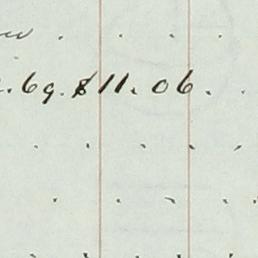 .69. $11.06.